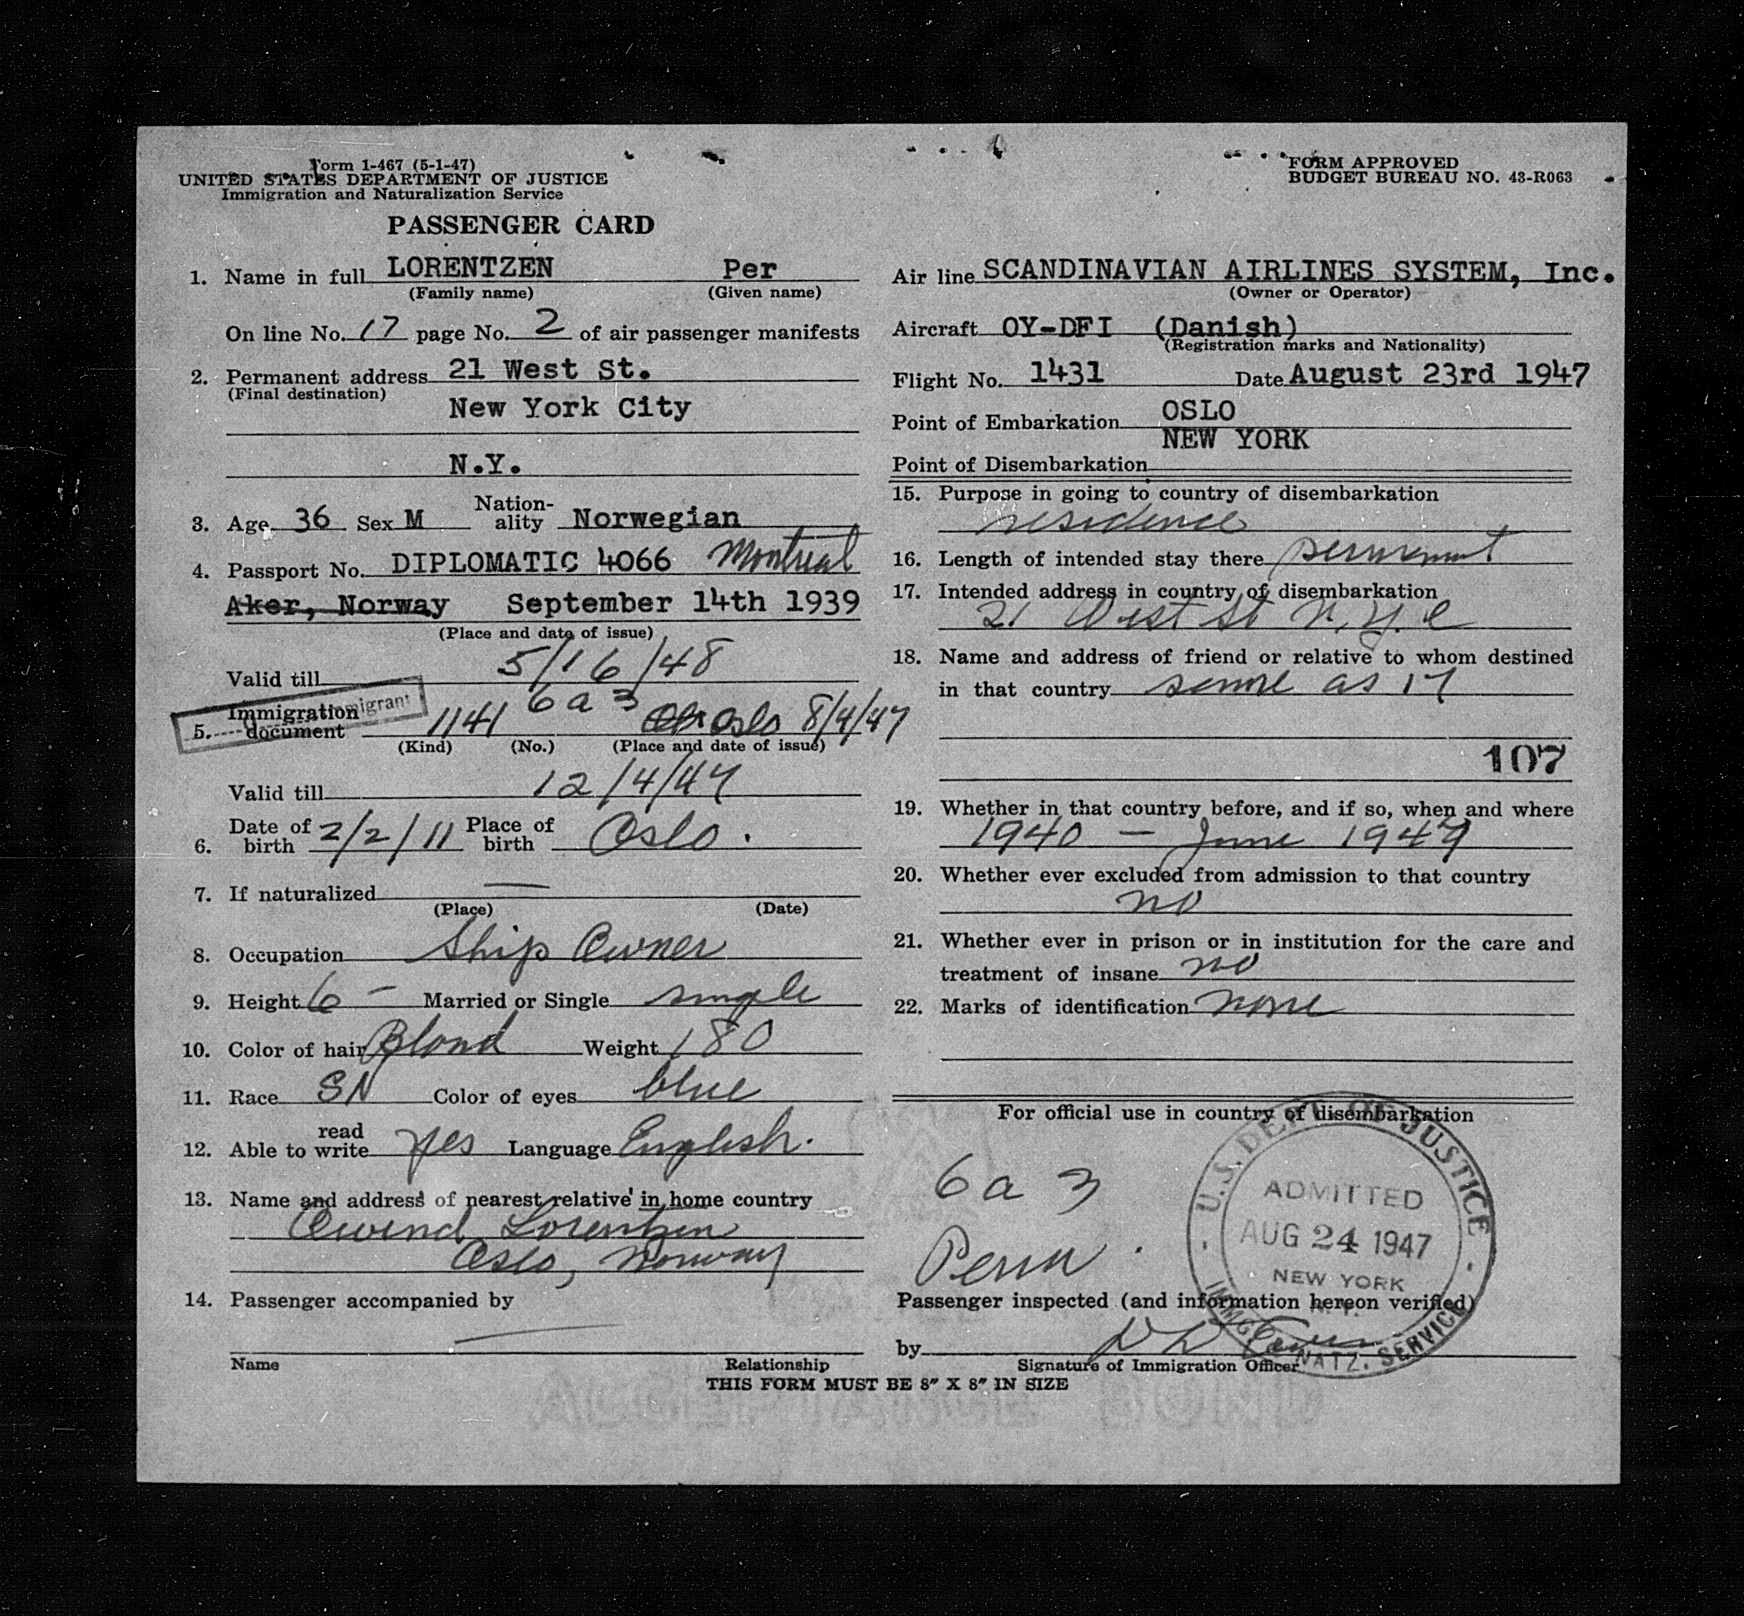 Form 1-467 (5-1-47)
UNITED STATES DEPARTMENT OF JUSTICE
Immigration and Naturalization Service
PASSENGER CARD
1. Name in full LORENTZEN Per
(Family name) (Given name)
On line No. 17 page No. 2 of air passenger manifests
2. Permanent address 21 West St.
(Final destination)
New York City
N.Y.
3. Age 36 Sex M Nation-ality Norwegian
4. Passport No. DIPLOMATIC 4066 Montreal
Aker, Norway September 14th 1939
(Place and date of issue)
Valid till 5/16/48
6a3
5. Immigration document 1141 Oslo 8/4/47
(Kind) (No.) (Place and date of issue)
Valid till 12/4/47
6. Date of birth 2/2/11 Place of birth Oslo.
7. If naturalized —
(Place) (Date)
8. Occupation Ship Owner
9. Height 6 – Married or Single single
10. Color of hair Blond Weight 180
11. Race SN Color of eyes blue
12. Able to read write yes Language English.
13. Name and address of nearest relative in home country
Lorentzen
Oslo, Norway
14. Passenger accompanied by
—
Name Relationship
THIS FORM MUST BE 8″ X 8″ IN SIZE
FORM APPROVED
BUDGET BUREAU NO. 43-R063
Air line SCANDINAVIAN AIRLINES SYSTEM, Inc.
(Owner or Operator)
Aircraft OY-DFI (Danish)
(Registration marks and Nationality)
Flight No. 1431 Date August 23rd 1947
Point of Embarkation OSLO
NEW YORK
Point of Disembarkation
15. Purpose in going to country of disembarkation
residence
16. Length of intended stay there permanent
17. Intended address in country of disembarkation
21 West St N.Y.C
18. Name and address of friend or relative to whom destined
in that country same as 17
107
19. Whether in that country before, and if so, when and where
1940 – June 1947
20. Whether ever excluded from admission to that country
no
21. Whether ever in prison or in institution for the care and
treatment of insane no
22. Marks of identification none
For official use in country of disembarkation
6a3
Perm.
U.S. DEPT. OF JUSTICE
ADMITTED
AUG 24 1947
NEW YORK
N.Y.
IMMIG. & NATZ. SERVICE
Passenger inspected (and information hereon verified)
by
Signature of Immigration Officer